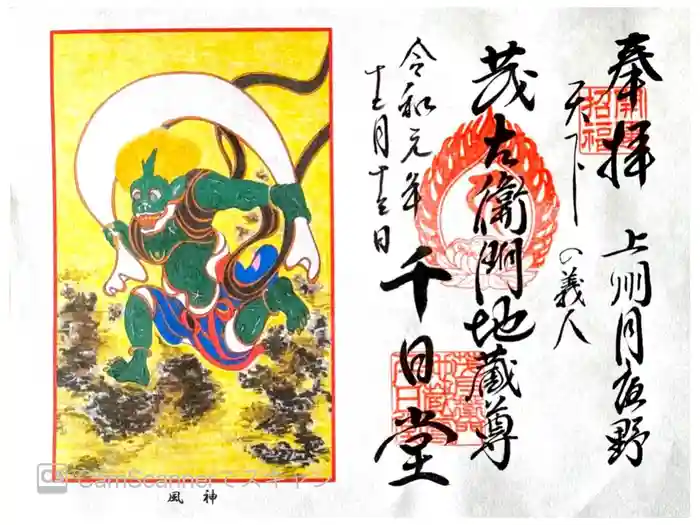 奉拝
上州月夜野
天下の義人
茂左衛門地蔵尊
千日堂
令和元年
十二月十三日
開運
招福
風神
CamScannerでスキャン